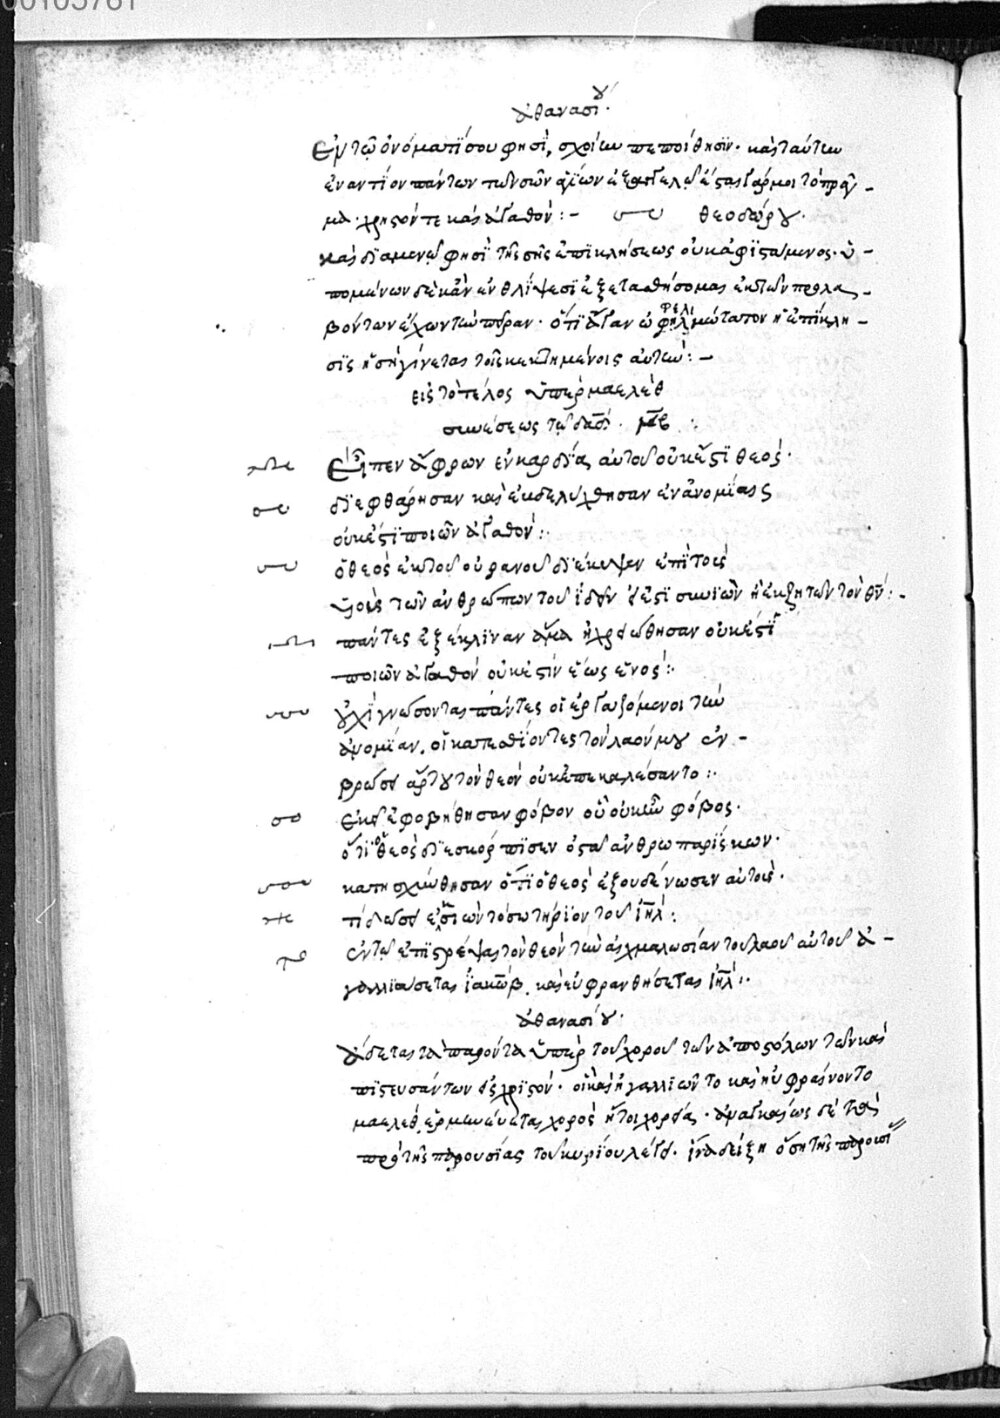 00105761
ἀθανασίου·
Ἐν τῶ ὀνόματί σου φησὶ, σχοίην πεποίθησιν· καὶ ταύτην
ἐναντίον πάντων τῶν σῶν ἁγίων ἐξαγγελῶ ἔσται γάρ μοι τὸ πρᾶγ-
μα χρηστόν τε καὶ ἀγαθόν :- θεοδώρου·
καὶ διαμενῶ φησὶ τῆς σῆς ἐπικλήσεως οὐκ ἀφιστάμενος· ὑ-
πομένων δὲ κἂν ἐν θλίψεσι ἐξετασθήσομαι ἐκ τῶν προλα-
βόντων ἔχων τὴν πεῖραν· ὅτι ἄγαν ὠφελιμώτατον ἡ ἐπίκλη-
σις ἡ σὴ γίνεται τοῖς κεκτημένοις αὐτὴν :-
εἰς τὸ τέλος ὑπὲρ μαελὲθ
συνέσεως τῶ δαδ· νβ
Εἶπεν ἄφρων ἐν καρδία αὐτοῦ οὐκ ἔστι θεός·
διεφθάρησαν καὶ ἐβδελύχθησαν ἐν ἀνομίαις
οὐκ ἔστι ποιῶν ἀγαθόν :
ὁ θεὸς ἐκ τοῦ οὐρανοῦ διέκυψεν ἐπὶ τοὺς
υἱοὺς τῶν ἀνθρώπων τοῦ ἰδεῖν εἰ ἔστι συνιὼν ἢ ἐκζητῶν τὸν θν :-
πάντες ἐξέκλιναν ἅμα ἠχρειώθησαν οὐκ ἔστι
ποιῶν ἀγαθόν οὐκ ἔστιν ἕως ἑνός :
οὐχὶ γνώσονται πάντες οἱ ἐργαζόμενοι τὴν
ἀνομίαν, οἱ κατεσθίοντες τὸν λαόν μου ἐν
βρώσει ἄρτου τὸν θεὸν οὐκ ἐπεκαλέσαντο :
ἐκεῖ ἐφοβήθησαν φόβον οὗ οὐκ ἦν φόβος·
ὅτι ὁ θεὸς διεσκόρπισεν ὀστᾶ ἀνθρωπαρέσκων·
κατησχύνθησαν ὅτι ὁ θεὸς ἐξουδένωσεν αὐτούς·
τίς δώσει ἐκ σιὼν τὸ σωτήριον τοῦ ιηλ :
ἐν τῶ ἐπιστρέψαι τὸν θεὸν τὴν αἰχμαλωσίαν τοῦ λαοῦ αὐτοῦ ἀ-
γαλλιάσεται ἰακὼβ, καὶ εὐφρανθήσεται ιηλ :
ἀθανασίου·
Ἄδεται τὰ παρόντα ὑπὲρ τοῦ χοροῦ τῶν ἀποστόλων τῶν καὶ
πιστευσάντων εἰς χριστόν· οἳ καὶ ἠγαλλιῶντο καὶ ηὐφραίνοντο
μαελὲθ ἑρμηνεύεται χορὸς ἤτοι χορεία· ἀναγκαίως δὲ τὰ
πρὸ τῆς παρουσίας τοῦ κυρίου λέγει· ἵνα δείξη ὅση τῆς παρουσί